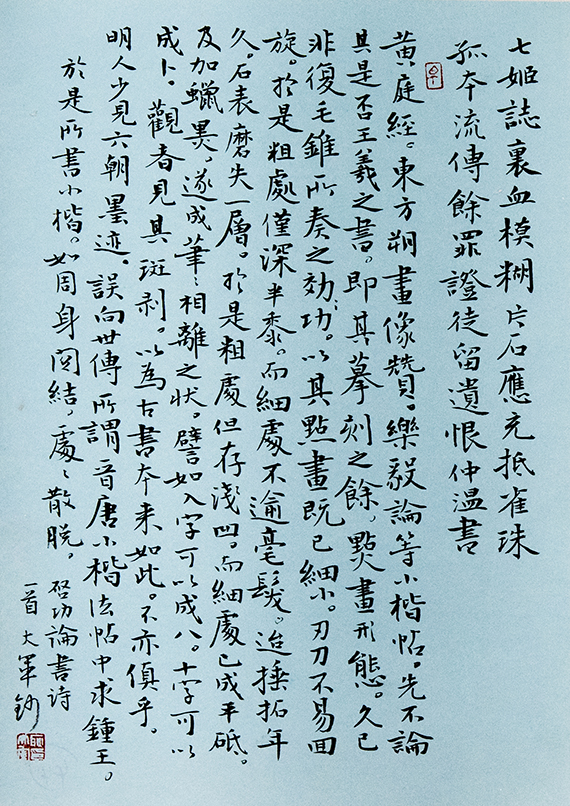 七姬誌裏血模糊片石應充抵雀珠
孤本流傳餘罪證徒留遺恨仲溫書
黃庭經。東方朔畫像贊。樂毅論等小楷帖。先不論
其是否王羲之書。即其摹刻之餘，點畫形態。久已
非復毛錐所奏之効功。以其點畫既已細小。刃刀不易回
旋。於是粗處僅深半黍。而細處不逾毫髮。迨捶拓年
久。石表磨失一層。於是粗處但存淺凹。而細處已成平砥。
及加蠟墨，遂成筆〻相離之狀。譬如入字可以成八。十字可以
成卜。觀者見其斑剝。以為古書本來如此。不亦傎乎。
明人少見六朝墨迹。誤向世傳所謂晉唐小楷法帖中求鍾王。
於是所書小楷。如周身関結，處〻散脫。
啓功論書詩
一首 大軍鈔